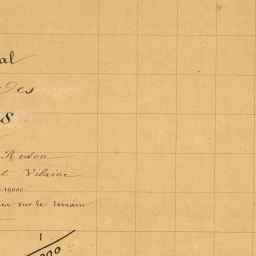 al
des
s
Redon
t Vilaine
10000
sur le terrain
1
000